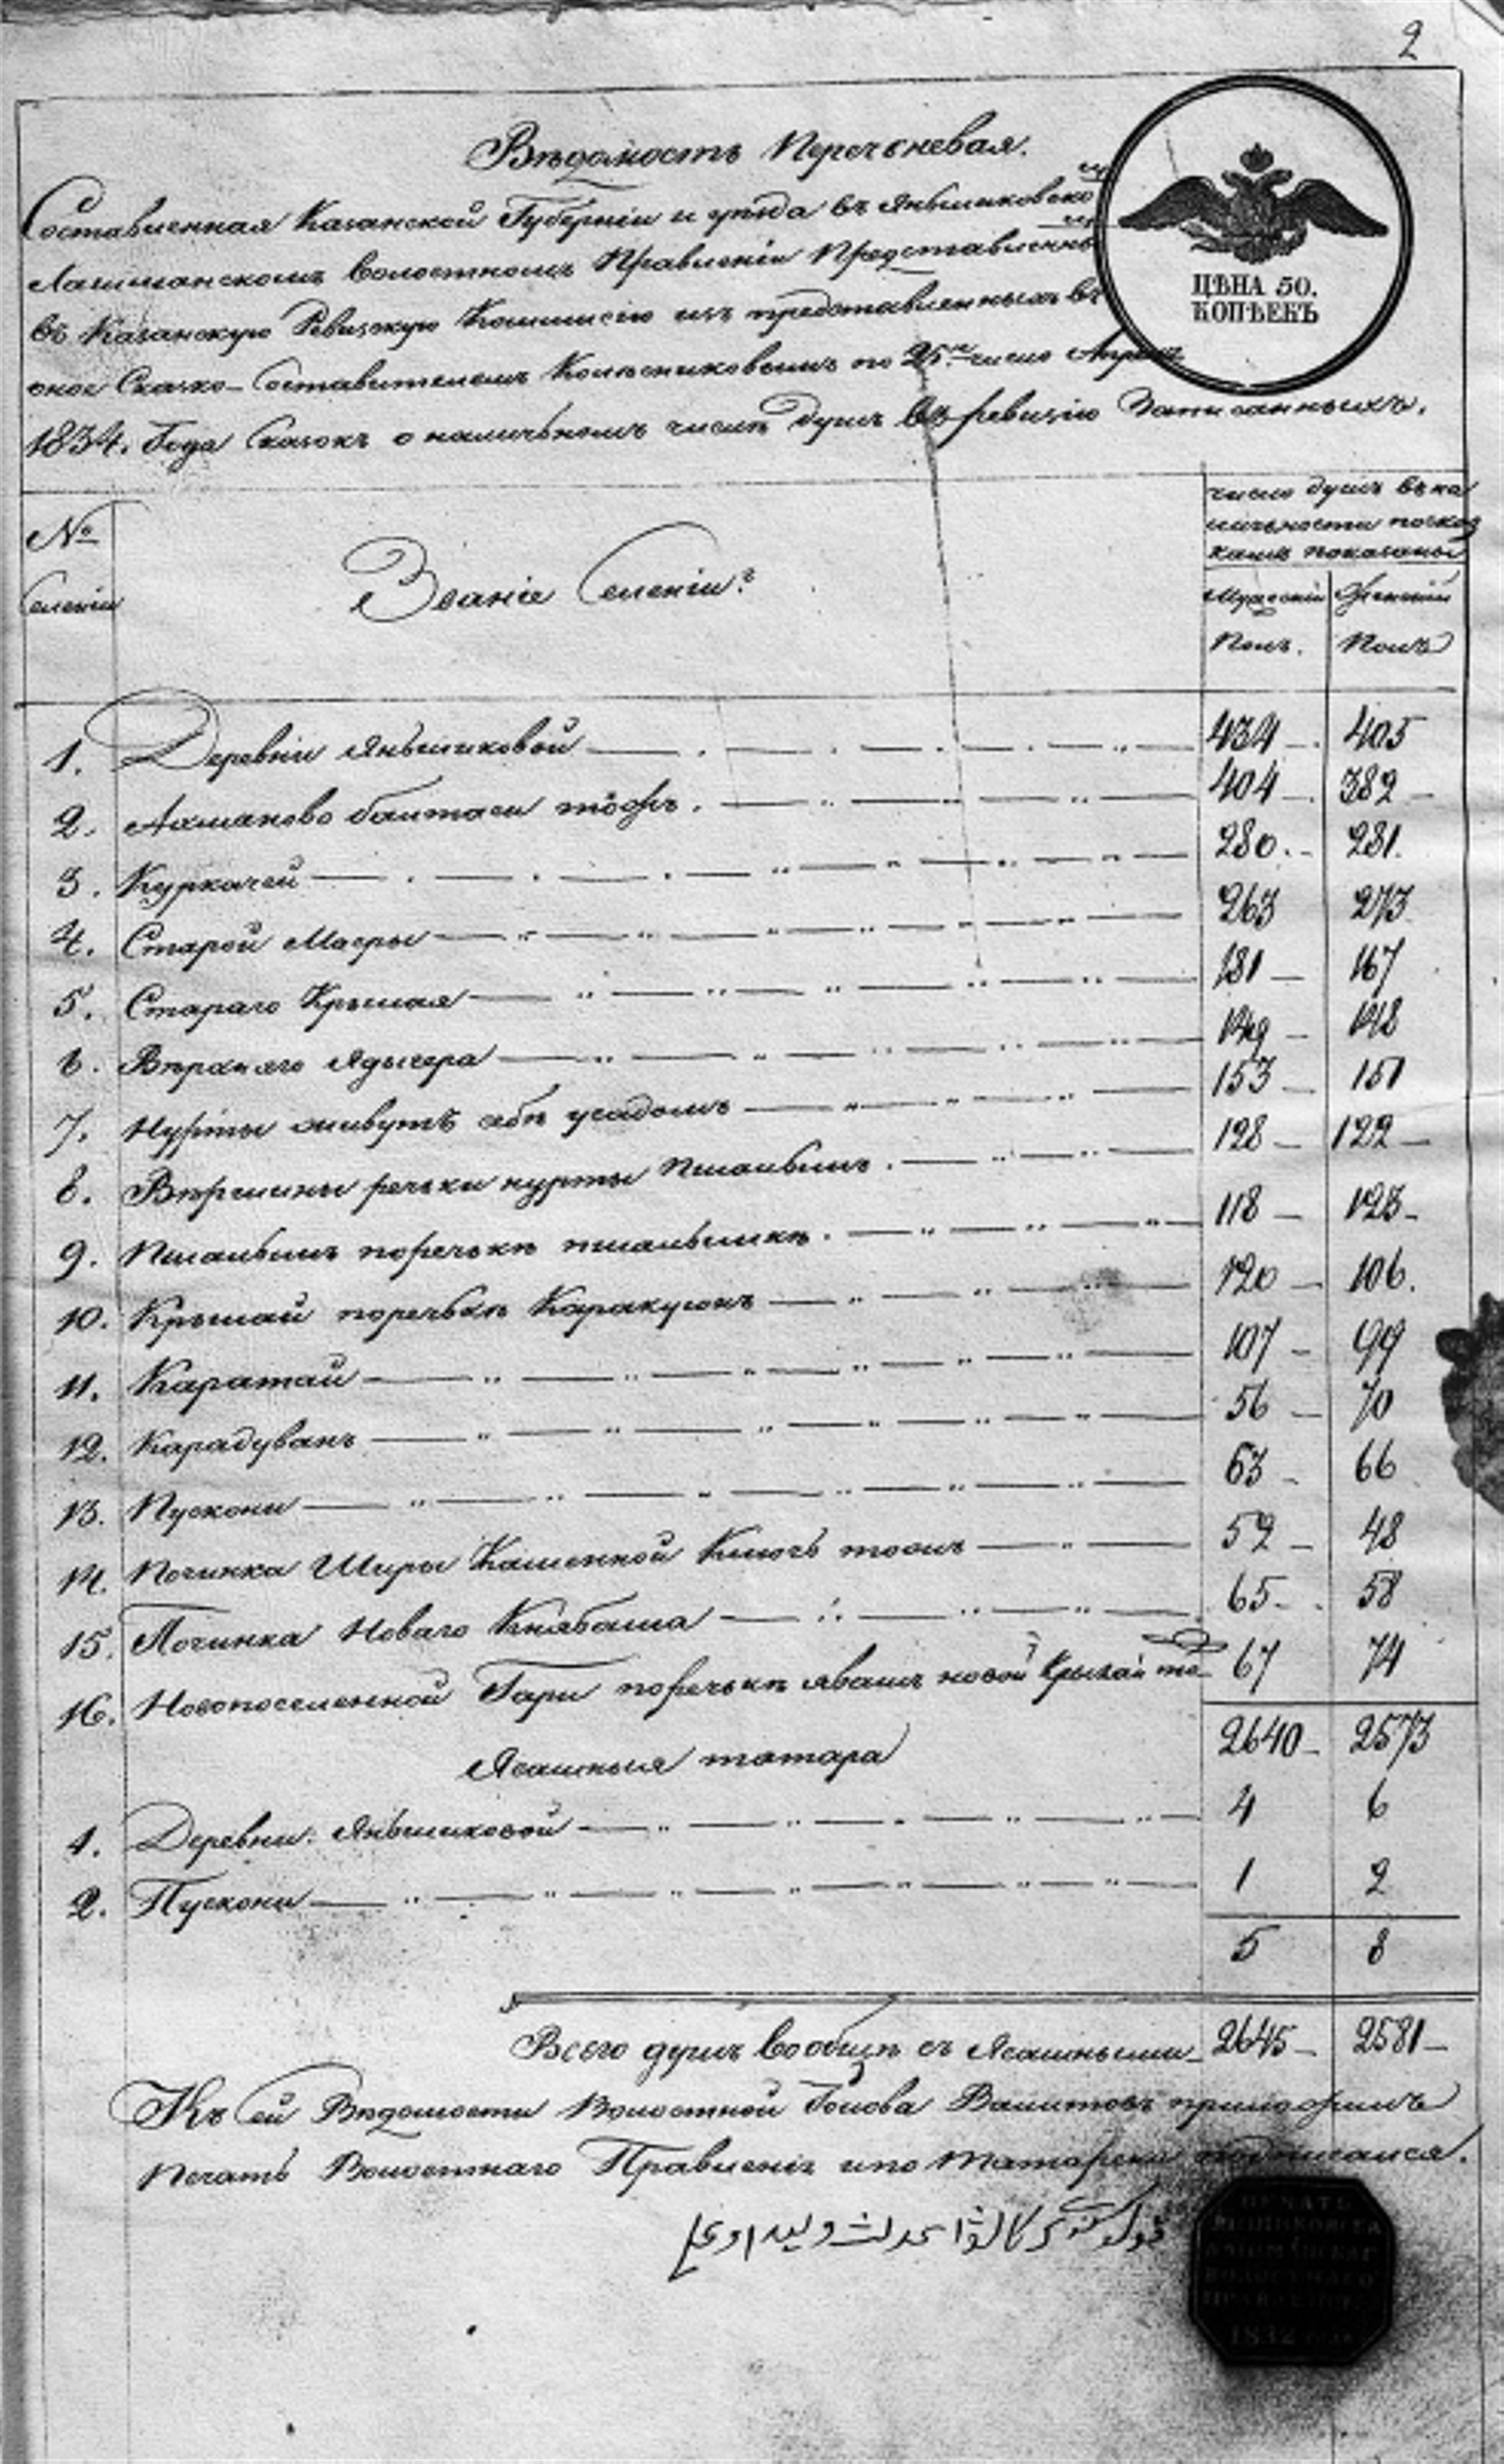 2
Вѣдомость Перечневая.
ЦѢНА 50.
КОПѢЕКЪ
Составленная Казанской Губерніи и уѣзда въ Янышиковско
Лашманскомъ Волостномъ Правленіи Представленны
въ Казанскую Ревизскую Коммисію изъ представленныхъ въ
оное Сказко-Составителемъ Колесниковымъ по 25е число Апрѣля
1834. Года Сказокъ о наличномъ числѣ душъ въ ревизію Записанныхъ.
№
Селеніи
Званіе Селеніи
число душъ въ на
личности по сказ
камъ показаны
Мужескій Полъ.
Женскій Полъ
1. Деревни Янышиковой 434 405
2. Ахманово баштаси тожъ. 404 382
3. Куркачей 280. 281.
4. Старой Масры 263 273
5. Стараго Крылая 181 167
6. Вѣрхняго Ядыгера 149 148
7. Нурты живутъ абѣ усадомъ 153 151
8. Вѣршины речьки нурты Пшалымъ. 128 122
9. Пшалымъ поречькѣ пшалымкѣ. 118 123
10. Крылай поречькѣ Каракуюкъ 120 106.
11. Каратай 107 99
12. Карадуванъ 56 70
13. Пускони 63 66
14. Починка Ширы Каменной Ключь тожъ 52 48
15. Починка Новаго Князбаша 65 58
16. Новопоселенной Гари поречькѣ явашъ новой Крылай то 67 74
2640 2573
Ясашныя татара
1. Деревни Янышиковой 4 6
2. Пускони 1 2
5 8
Всего душъ вообщѣ съ Ясашными 2645 2581
Къ сей Вѣдомости Волостной Голова Валитовъ приложилъ
Печать Волостнаго Правленія и по Татарски подписался.
ПЕЧАТЬ
ВОЛОСТНАГО
ПРАВЛЕНІЯ
1832